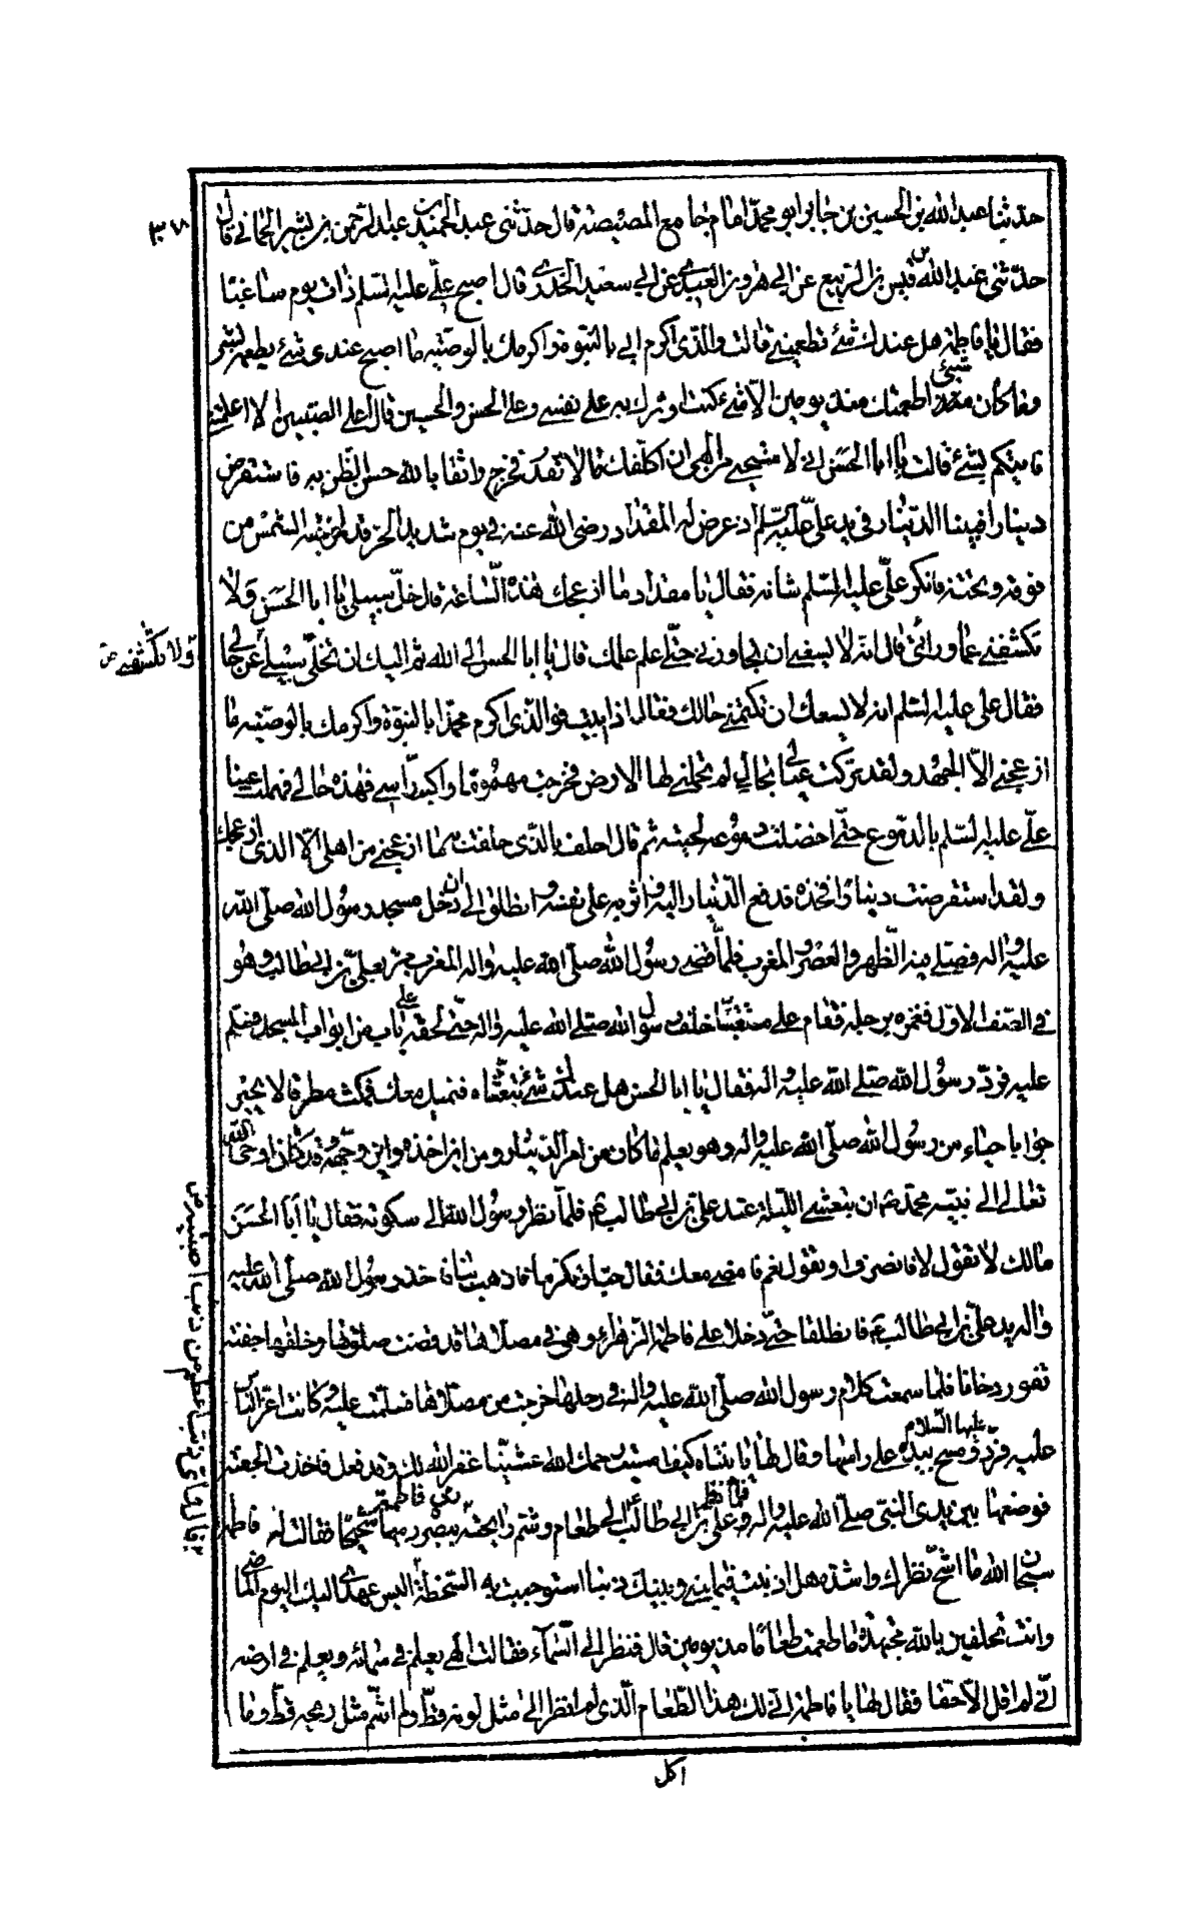 حدثنا عبد الله بن الحسين بن جابر ابو محمد امام جامع المصيصة قال حدثنى عبد الحميد بن عبد الرحمن بن بشير الحمانى قال
٣٧٨
حدثنى عبد الله بن قيس بن الربيع عن ابى هارون العبدى عن ابى سعيد الخدرى قال اصبح على عليه السلم ذات يوم ساغبا
فقال يا فاطمة هل عندك شئ تطعمينى قالت والذى اكرم ابى بالنبوة واكرمك بالوصية ما اصبح عندى شئ يطعمه بشر
وما كان شئ اطعمك منذ يومين الا شئ كنت اوثرك به على نفسى وعلى الحسن والحسين قال اعلى الصبيين الا اعلمتنى
فاتيكم بشئ قالت يا ابا الحسن انى لا ستحيى من الهى ان اكلفك ما لا تقدر فخرج واثقا بالله حسن الظن به فاستقرض
دينارا فبينا الدينار فى يد على عليه السلم اذ عرض له المقداد رضى الله عنه فى يوم شديد الحر قد لوحته الشمس من
فوقه وتحته فانكر على عليه السلم شانه فقال يا مقداد ما ازعجك هذه الساعة قال خل سبيلى يا ابا الحسن ولا
تكشفنى عما ورائى قال انه لا يسعنى ان تجاوزنى حتى اعلم علمك قال يا ابا الحسن الى الله ثم اليك ان تخلى سبيلى عن حالى
ولا تكشفنى ص
فقال على عليه السلم انه لا يسعك ان تكتمنى حالك فقال اذا ابيت فوالذى اكرم محمدا بالنبوة واكرمك بالوصية ما
ازعجنى الا الجهد ولقد تركت عيالى بحال لم تحملنى لها الارض فخرجت مهموما واكبد راسى فهذه حالى فهملت عينا
على عليه السلم بالدموع حتى اخضلت دموعه لحيته ثم قال احلف بالذى حلفت به ما ازعجنى من اهلى الا الذى ازعجك
ولقد استقرضت دينارا فخذه فدفع الدينار اليه واثره به على نفسه وانطلق الى ان دخل مسجد رسول الله صلى الله
عليه واله فصلى فيه الظهر والعصر والمغرب فلما قضى رسول الله صلى الله عليه واله المغرب مر بعلى بن ابى طالب وهو
فى الصف الاول فغمزه برجله فقام على متعقبا خلف رسول الله صلى الله عليه واله حتى لحقه على باب من ابواب المسجد فسلم
عليه فرد رسول الله صلى الله عليه واله فقال يا ابا الحسن هل عندك شئ نتعشاه فنميل معك فمكث مطرقا لا يحير
جوابا حياء من رسول الله صلى الله عليه واله وهو يعلم ما كان من امر الدينار ومن اين اخذه واين وجهه قد كان اوحى الله
تعالى الى نبيه محمد ص ان يتعشى الليلة عند على بن ابى طالب ع فلما نظر رسول الله الى سكوته فقال يا ابا الحسن
مالك لا تقول لا فانصرف او تقول نعم فامضى معك فقال حياء وتكرما فاذهب بنا فاخذ رسول الله صلى الله عليه
واله يد على بن ابى طالب ع فانطلقا حتى دخلا على فاطمة الزهراء وهى فى مصلاها قد قضت صلوتها وخلفها جفنة
تفور دخانا فلما سمعت كلام رسول الله صلى الله عليه واله فى رحلها خرجت من مصلاها فسلمت عليه وكانت اعز الناس
عليه فرد ومسح بيده على راسها وقال لها يا بنتاه كيف امسيت رحمك الله عشينا غفر الله لك وقد فعل فاخذت الجفنة
عليها السلام
فوضعتها بين يدى النبى صلى الله عليه واله وعلى بن ابى طالب فلما نظر الى طعام وشم رايحته رمى فاطمة ببصره رميا شحيحا فقالت له فاطمة
سبحان الله ما اشح نظرك واشده هل اذنبت فيما بينى وبينك ذنبا استوجبت به السخطة اليس عهدى اليك اليوم الماضى
وانت تحلفين بالله مجتهدة ما طعمت طعاما مذ يومين قال فنظر الى السماء فقالت الهى يعلم فى سمائه ويعلم فى ارضه
انى لم اقل الا حقا فقال لها يا فاطمة انى لك هذا الطعام الذى لم انظر الى مثل لونه قط ولم اشم مثل ريحه قط وما
اكل
قال واى ذنب اعظم من ذنب اصبتيه ص